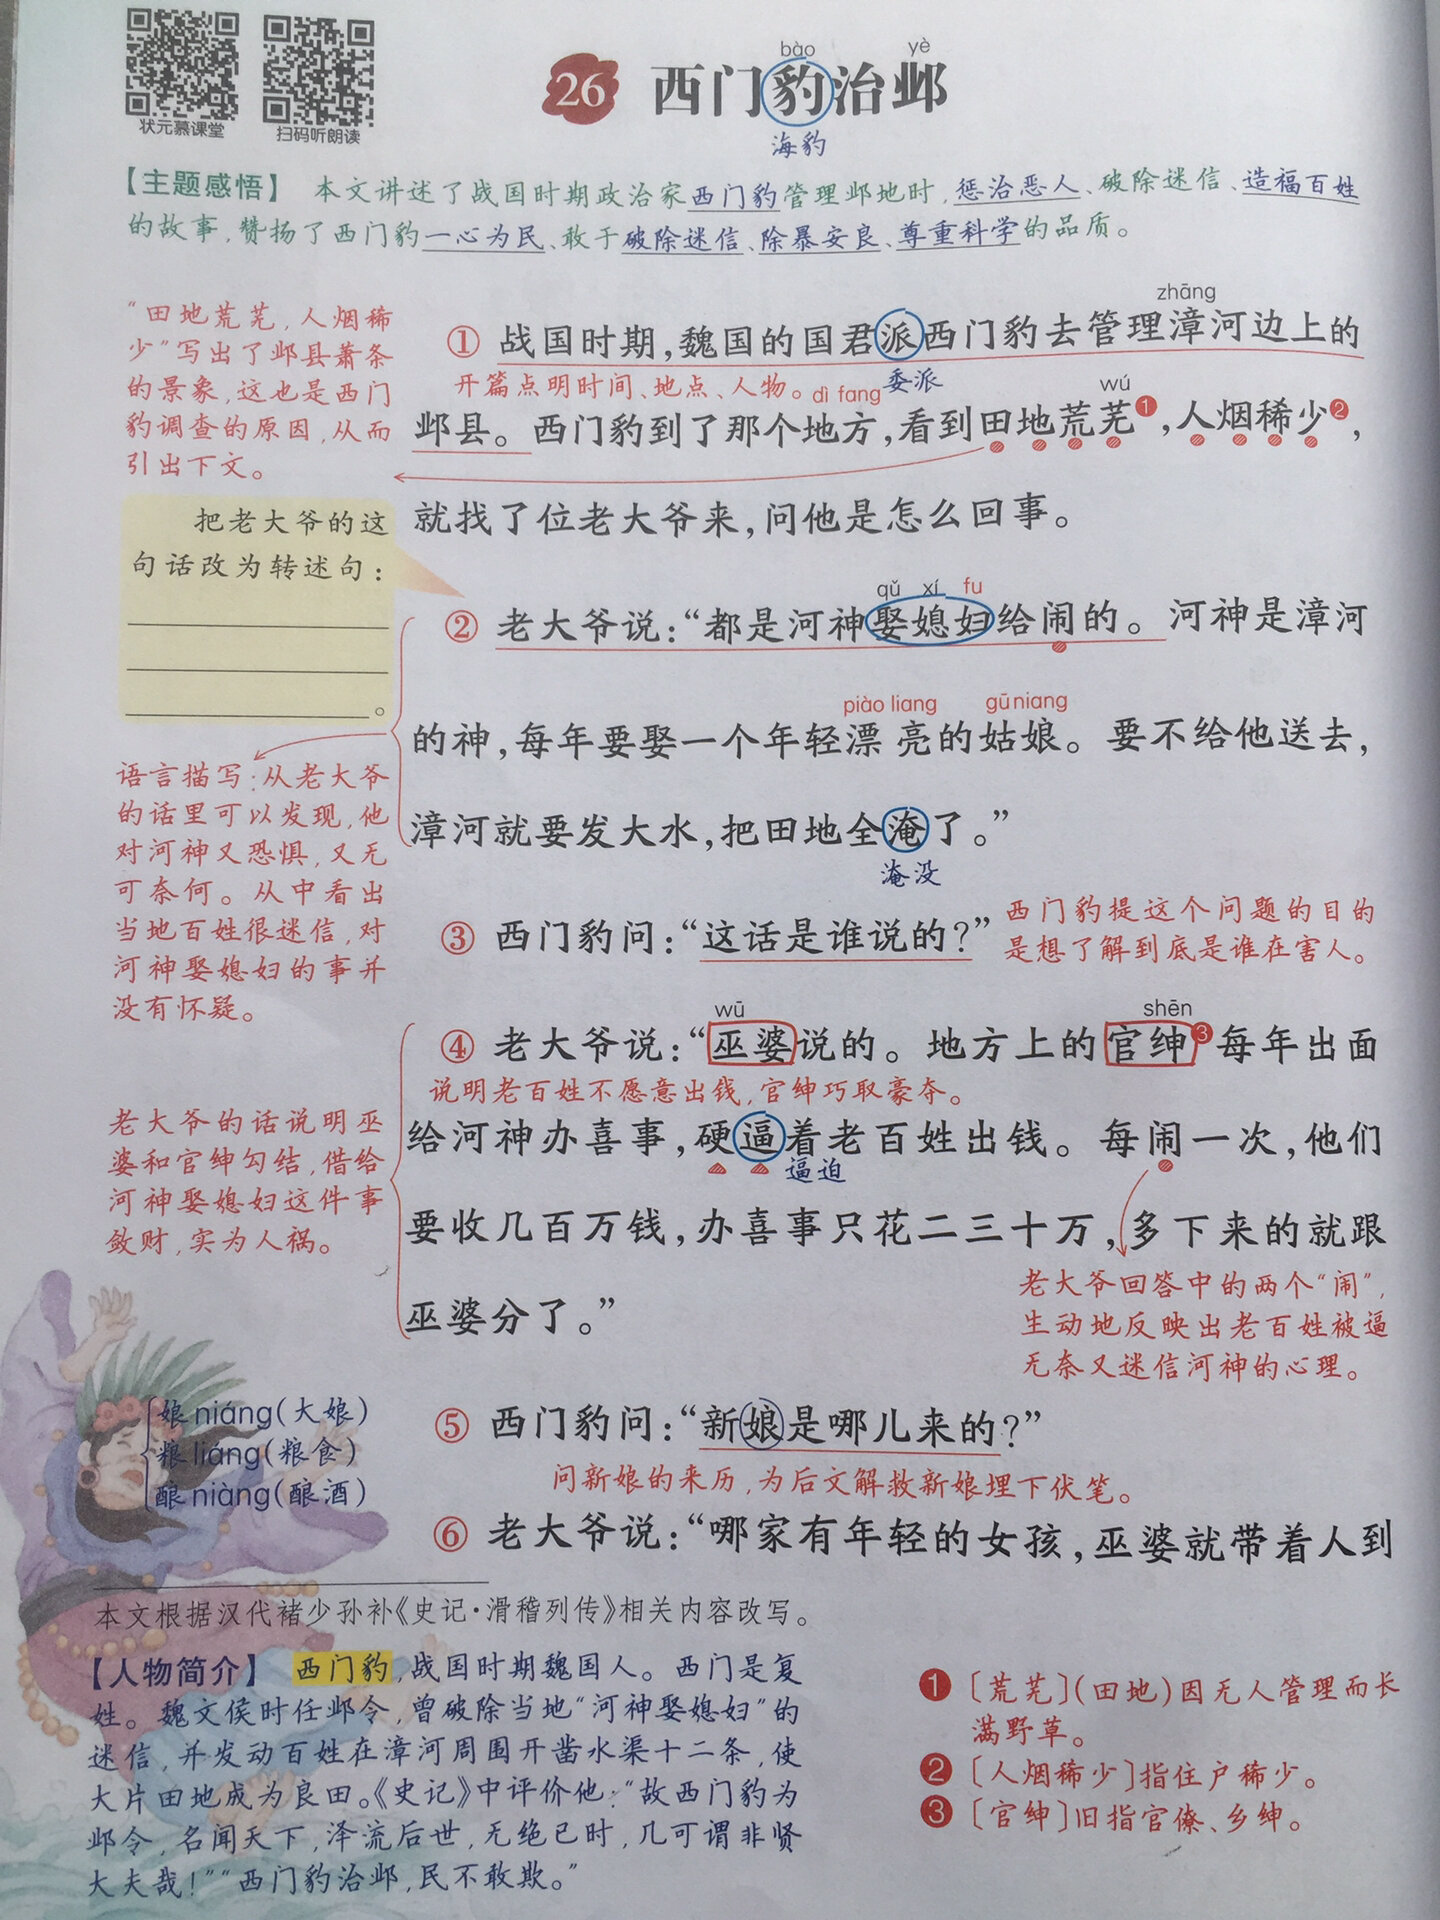 状元慕课堂
扫码听朗读
bào yè
26 西门豹治邺
海豹
【主题感悟】 本文讲述了战国时期政治家西门豹管理邺地时,惩治恶人、破除迷信、造福百姓
的故事,赞扬了西门豹一心为民、敢于破除迷信、除暴安良、尊重科学的品质。
“田地荒芜,人烟稀
少”写出了邺县萧条
的景象,这也是西门
豹调查的原因,从而
引出下文。
zhāng
① 战国时期,魏国的国君派西门豹去管理漳河边上的
开篇点明时间、地点、人物。 dì fang 委派 wú
邺县。西门豹到了那个地方,看到田地荒芜❶,人烟稀少❷,
就找了位老大爷来,问他是怎么回事。
把老大爷的这
句话改为转述句:
。
qǔ xí fu
② 老大爷说:“都是河神娶媳妇给闹的。河神是漳河
piào liang gū niang
的神,每年要娶一个年轻漂亮的姑娘。要不给他送去,
漳河就要发大水,把田地全淹了。”
淹没
语言描写:从老大爷
的话里可以发现,他
对河神又恐惧,又无
可奈何。从中看出
当地百姓很迷信,对
河神娶媳妇的事并
没有怀疑。
③ 西门豹问:“这话是谁说的?”
西门豹提这个问题的目的
是想了解到底是谁在害人。
wū shēn
④ 老大爷说:“巫婆说的。地方上的官绅❸每年出面
说明老百姓不愿意出钱,官绅巧取豪夺。
给河神办喜事,硬逼着老百姓出钱。每闹一次,他们
逼迫
要收几百万钱,办喜事只花二三十万,多下来的就跟
巫婆分了。”
老大爷的话说明巫
婆和官绅勾结,借给
河神娶媳妇这件事
敛财,实为人祸。
老大爷回答中的两个“闹”,
生动地反映出老百姓被逼
无奈又迷信河神的心理。
娘 niáng(大娘)
粮 liáng(粮食)
酿 niàng(酿酒)
⑤ 西门豹问:“新娘是哪儿来的?”
问新娘的来历,为后文解救新娘埋下伏笔。
⑥ 老大爷说:“哪家有年轻的女孩,巫婆就带着人到
本文根据汉代褚少孙补《史记·滑稽列传》相关内容改写。
【人物简介】 西门豹,战国时期魏国人。西门是复
姓。魏文侯时任邺令,曾破除当地“河神娶媳妇”的
迷信,并发动百姓在漳河周围开凿水渠十二条,使
大片田地成为良田。《史记》中评价他:“故西门豹为
邺令,名闻天下,泽流后世,无绝已时,几可谓非贤
大夫哉!”“西门豹治邺,民不敢欺。”
❶〔荒芜〕(田地)因无人管理而长
满野草。
❷〔人烟稀少〕指住户稀少。
❸〔官绅〕旧指官僚、乡绅。